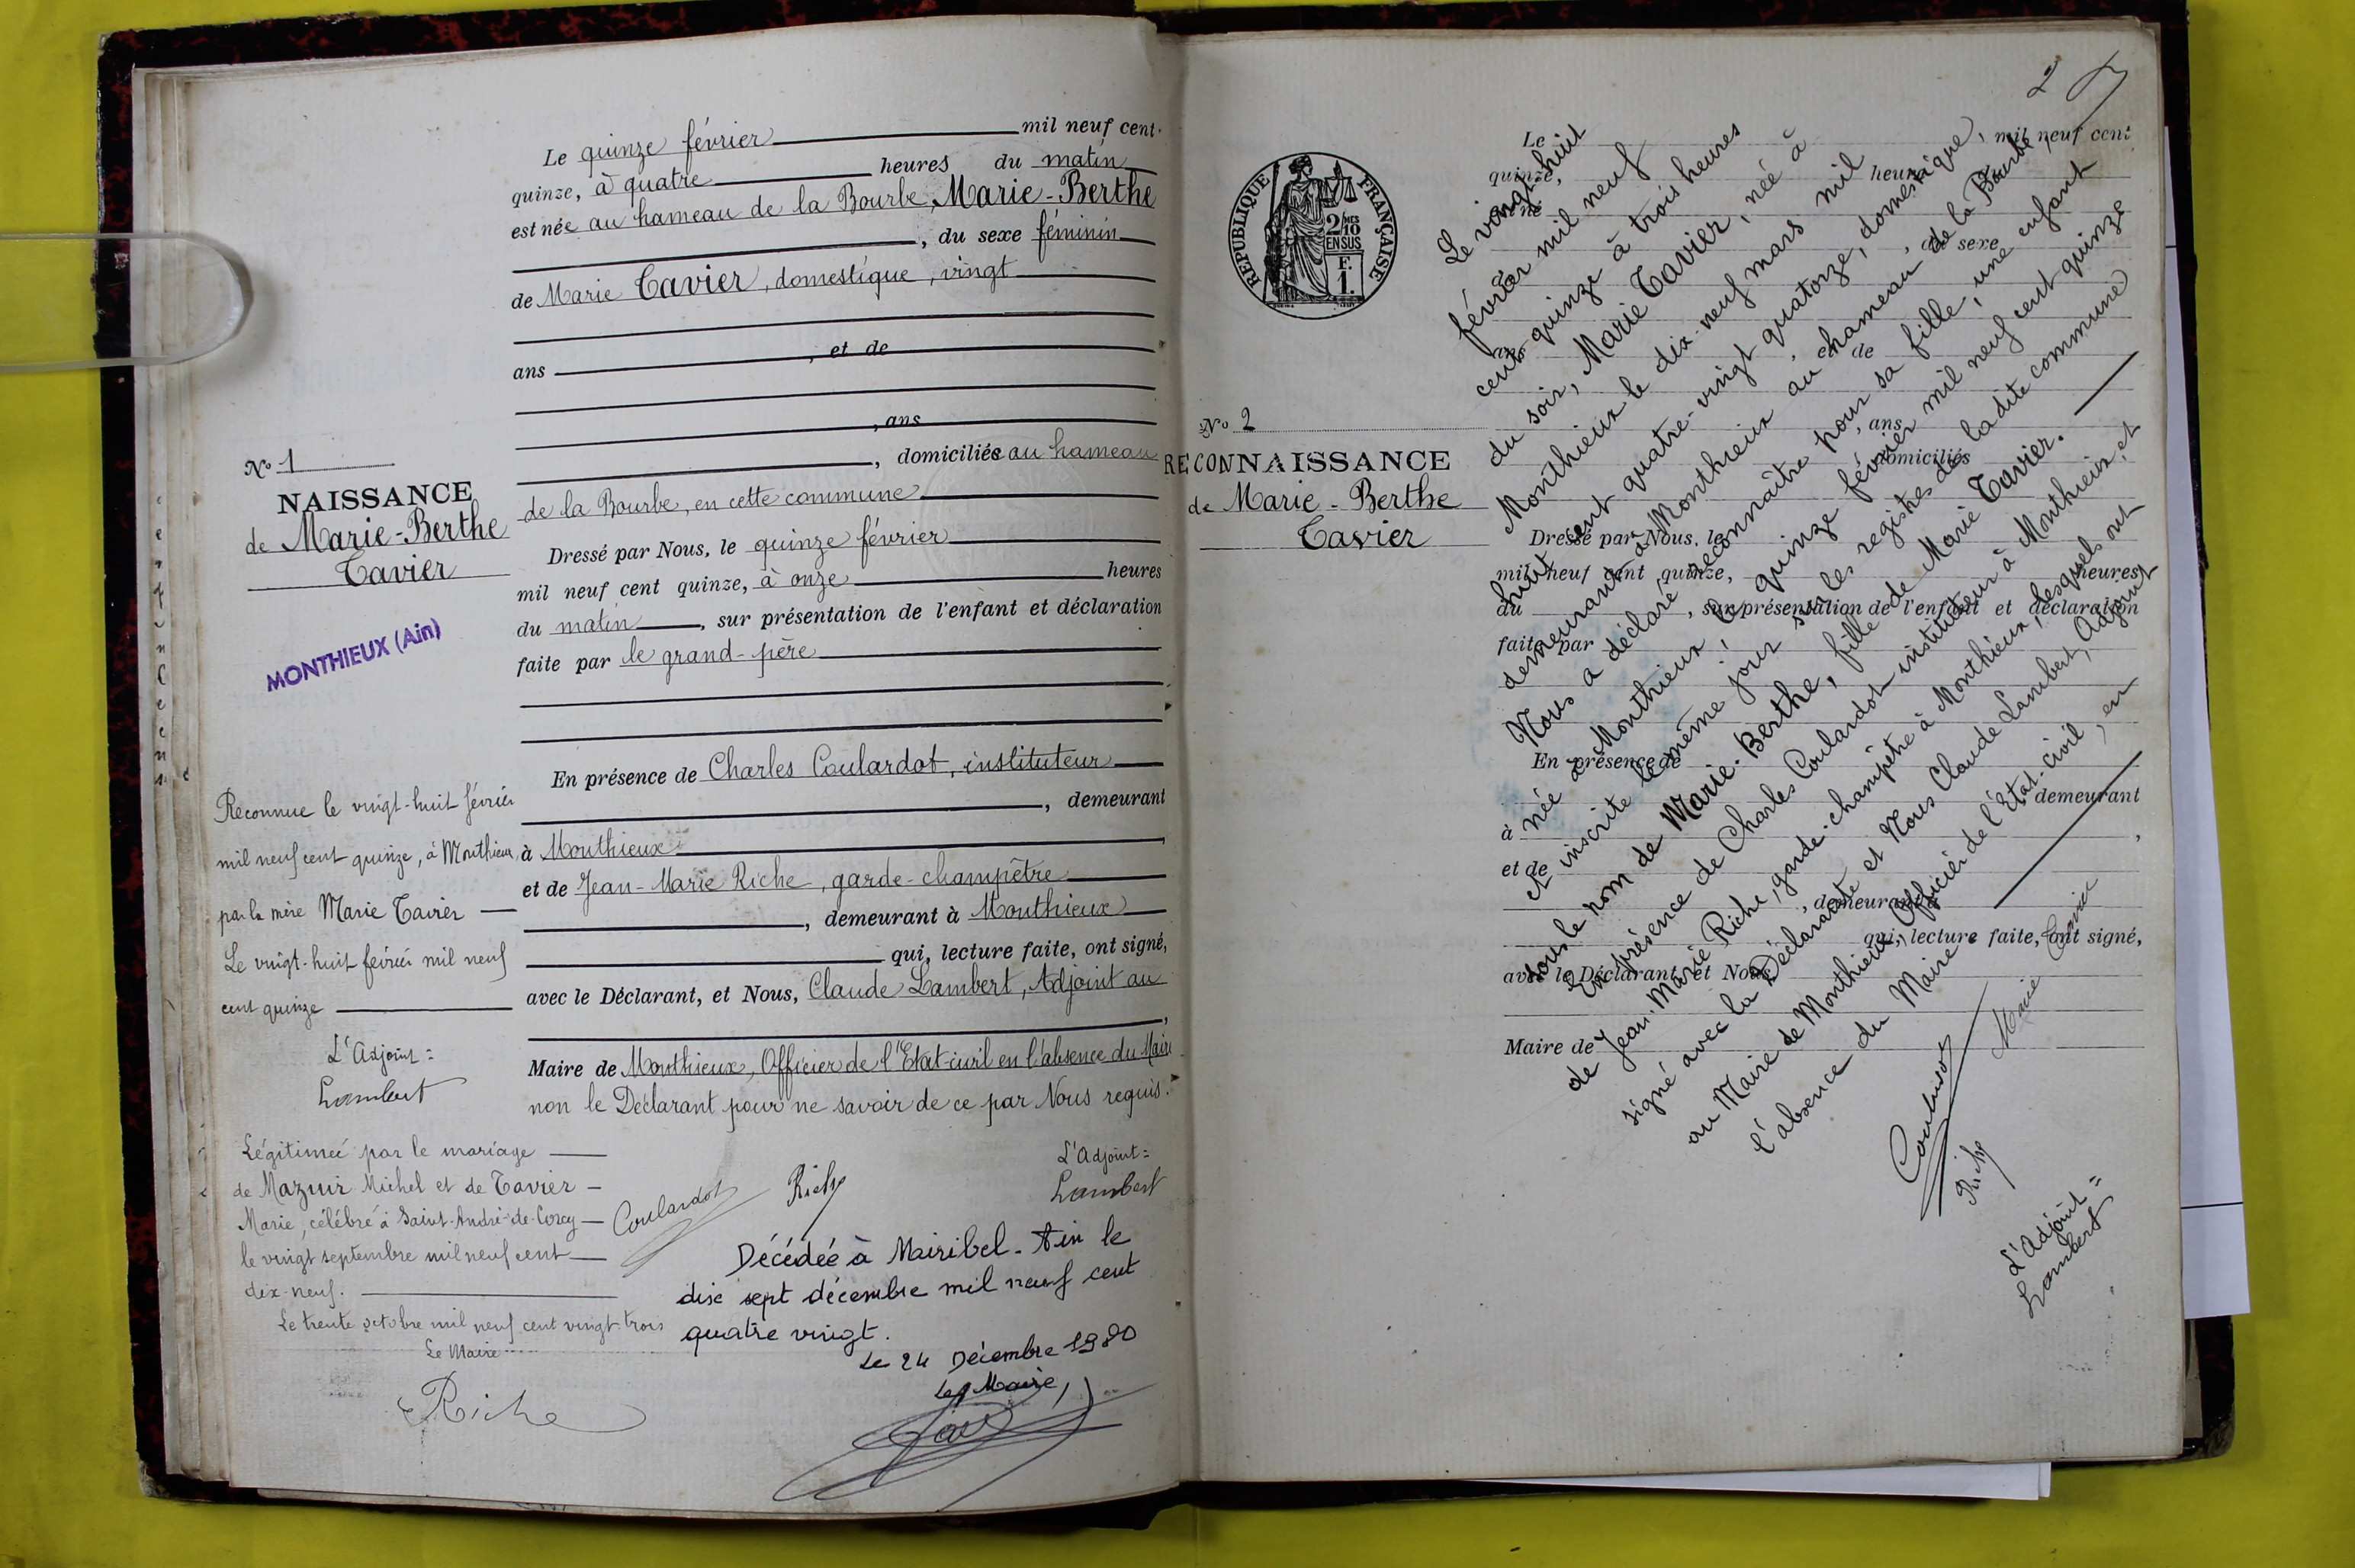 Le quinze février mil neuf cent
quinze, à quatre heures du matin
est née au hameau de la Bourbe, Marie-Berthe
, du sexe féminin
de Marie Tavier, domestique, vingt
ans , et de
, ans
, domiciliés au hameau
de la Bourbe, en cette commune
Dressé par Nous, le quinze février
mil neuf cent quinze, à onze heures
du matin, sur présentation de l'enfant et déclaration
faite par le grand-père
En présence de Charles Coulardot, instituteur
, demeurant
à Monthieux
et de Jean-Marie Riche, garde-champêtre
, demeurant à Monthieux
qui, lecture faite, ont signé,
avec le Déclarant, et Nous, Claude Lambert, Adjoint au
Maire de Monthieux, Officier de l'Etat-civil en l'absence du Maire
non le Déclarant pour ne savoir de ce par Nous requis.
Coulardot Riche L'Adjoint =
Lambert
No 1
NAISSANCE
de Marie-Berthe
Tavier
MONTHIEUX (Ain)
Reconnue le vingt-huit février
mil neuf cent quinze, à Monthieux,
par la mère Marie Tavier
Le vingt-huit février mil neuf
cent quinze
L'Adjoint =
Lambert
Légitimée par le mariage
de Mazuir Michel et de Tavier
Marie, célébré à Saint-André-de-Corcy
le vingt septembre mil neuf cent
dix-neuf.
Le trente octobre mil neuf cent vingt-trois
Le Maire
Riche
Décédée à Mairibel - Ain le
dix sept décembre mil neuf cent
quatre vingt.
Le 24 Décembre 1980
Le Maire,
2
REPUBLIQUE FRANÇAISE
2/10
EN SUS
F.
1.
No 2
RECONNAISSANCE
de Marie-Berthe
Tavier
Le mil neuf cent
quinze, heures
né
, du sexe
de
ans , et de
, ans
domiciliés
Dressé par Nous, le
mil neuf cent quinze, heures
du , sur présentation de l'enfant et déclaration
faite par
En présence de
demeurant
à
et de
, demeurant à
qui, lecture faite, ont signé,
avec le Déclarant, et Nous
Maire de
Le vingt-huit
février mil neuf
cent quinze à trois heures
du soir, Marie Tavier, née à
Monthieux le dix-neuf mars mil
huit cent quatre-vingt quatorze, domestique,
demeurant à Monthieux au hameau de la Bourbe,
Nous a déclaré reconnaître pour sa fille, une enfant
née à Monthieux, le quinze février mil neuf cent quinze
et inscrite le même jour sur les registres de la dite commune
sous le nom de Marie-Berthe, fille de Marie Tavier.
En présence de Charles Coulardot instituteur à Monthieux, et
de Jean-Marie Riche, garde-champêtre à Monthieux, lesquels ont
signé avec la Déclarante et Nous Claude Lambert, Adjoint
au Maire de Monthieux, Officier de l'Etat-civil, en
l'absence du Maire
Coulardot Marie Tavier
Riche
L'Adjoint =
Lambert